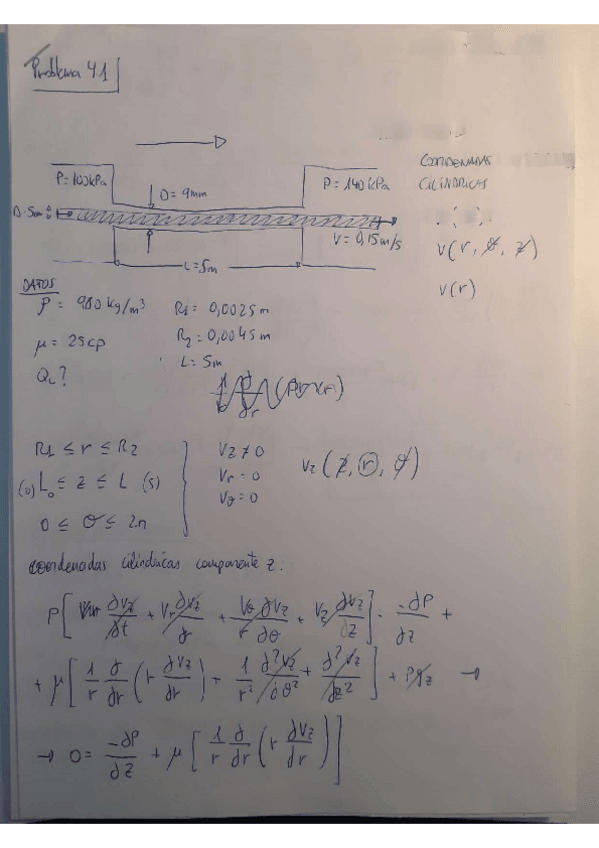 Problema 41
P = 100 kPa
D = 9mm
P = 140 kPa
D = 5mm
V = 0,15m/s
L = 5m
COORDENADAS
CILINDRICAS
v(r, θ, z)
v(r)
DATOS
ρ = 980 kg/m³
R1 = 0,0025 m
μ = 25cp
R2 = 0,0045 m
L = 5m
QL?
R1 ≤ r ≤ R2
(0) L₀ ≤ z ≤ L (5)
0 ≤ θ ≤ 2π
Vz ≠ 0
Vr = 0
Vθ = 0
Vz (z, r, θ)
coordenadas cilindricas componente z:
ρ[ ∂vz/∂t + Vr ∂vz/∂r + Vθ/r ∂vz/∂θ + Vz ∂vz/∂z ] = -∂P/∂z +
+ μ[ 1/r ∂/∂r (r ∂vz/∂r) + 1/r² ∂²vz/∂θ² + ∂²vz/∂z² ] + ρgz →
→ 0 = -∂P/∂z + μ[ 1/r ∂/∂r (r ∂vz/∂r) ]